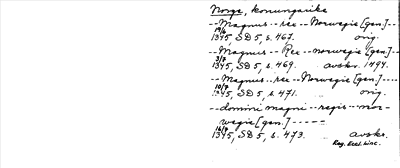 Norge, konungarike
--Magnus--rex--Norwegie [gen.]--
19/6
1345, SD 5, s. 467. orig.
--Magnus--Rex--norwegie [gen.]--
3/7
1345, SD 5, s. 469. avskr. 1494.
--Magnus--rex--Norwegie [gen.]----
10/7
1345, SD 5, s. 471. orig.
--domini magni--regis--nor-
wegie [gen.]-----
16/7
1345, SD 5, s. 473. avskr.
Reg. Eccl. Linc.